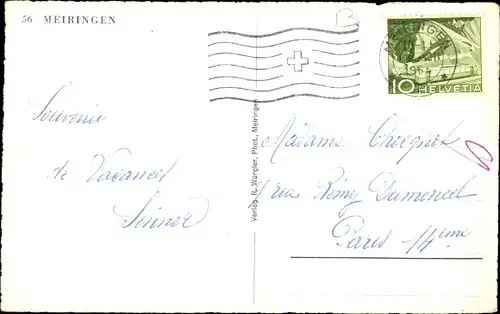 56 MEIRINGEN
MEIRINGEN
10 HELVETIA
Souvenir
de Vacances
Verlag R. Würgler, Phot., Meiringen
Madame
rue Rémy Dumoncel
Paris 14ème